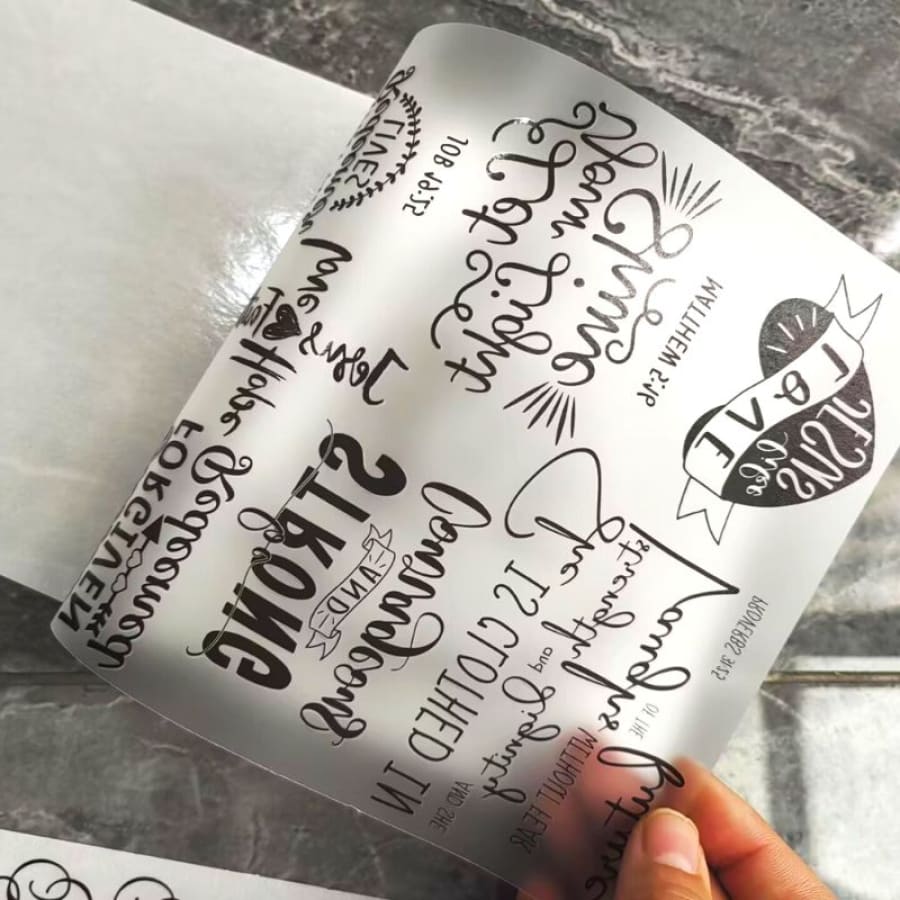 Redeemer
LIVES
JOB 19:25
Let
Your Light
Shine
MATTHEW 5:16
LOVE
like
JESUS
Love
Jesus
Hope
Redeemed
FORGIVEN
be
STRONG
AND
Courageous
She
IS CLOTHED IN
strength and dignity
AND SHE
Laughs
WITHOUT FEAR
OF THE
future
PROVERBS 31:25